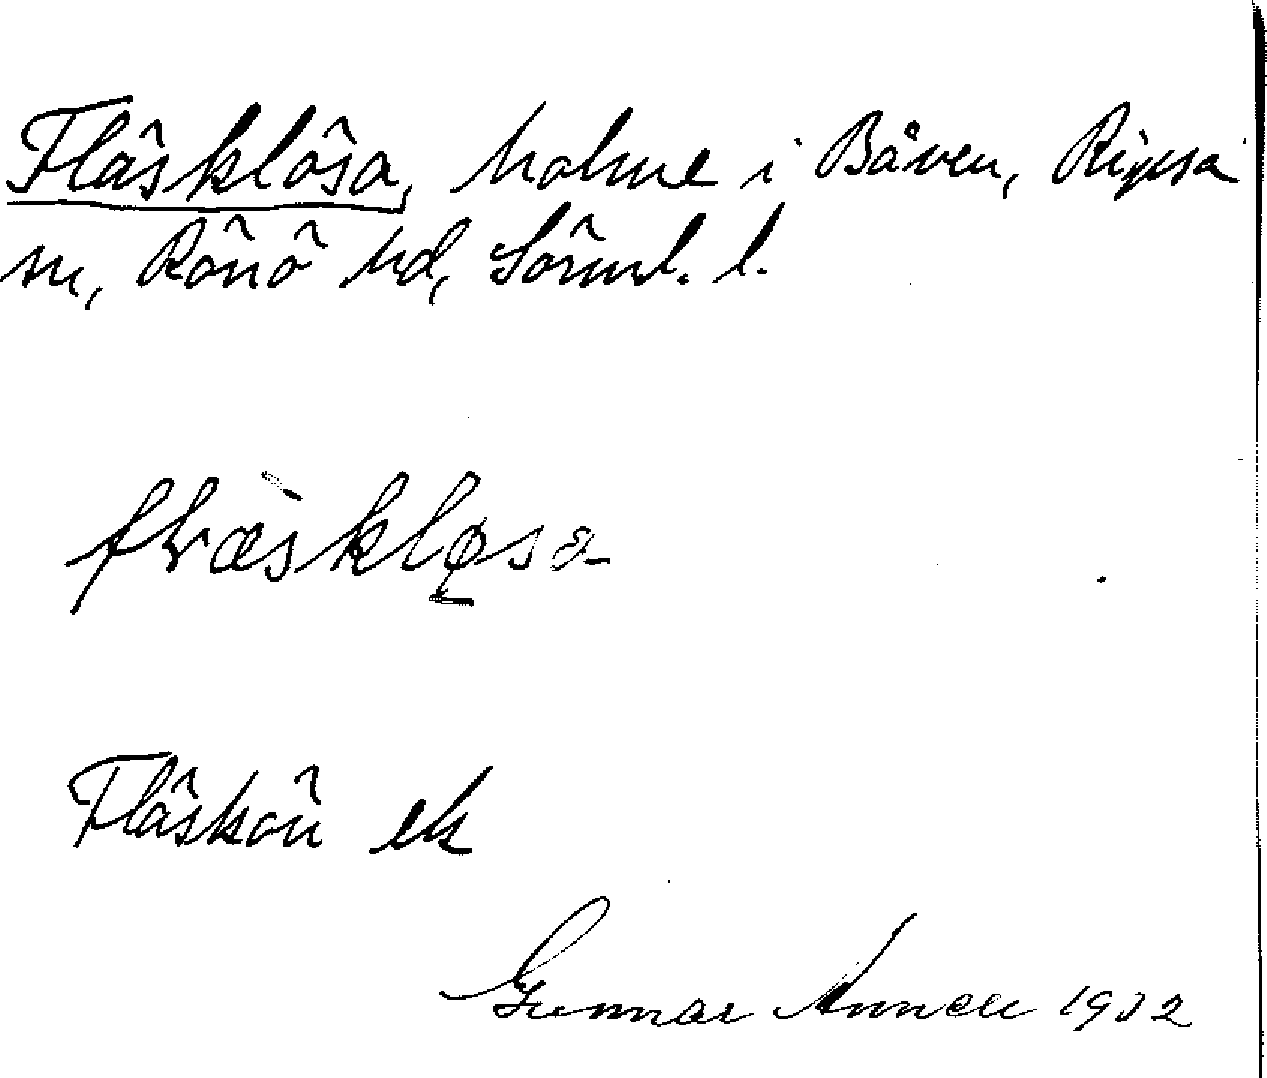 Fläsklösa, holme i Båven, Ripsa
sn, Rönö hd, Sörml. l.
flræskløsa
Fläskön ek
Gunnar Annell 1932